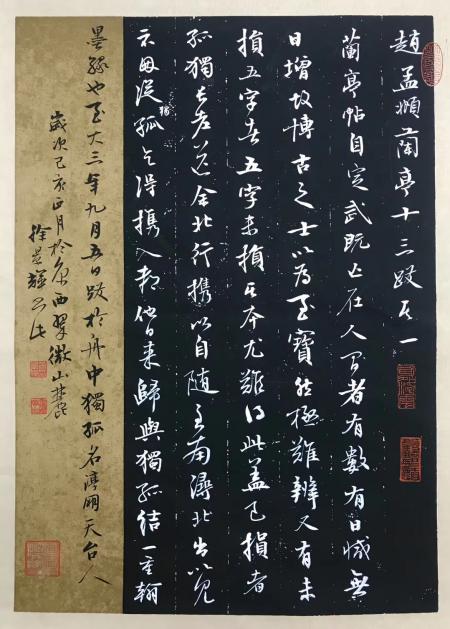 趙孟頫蘭亭十三跋其一
蘭亭帖自定武既亡在人間者有數有日減無
日增故博古之士以為至寶然極難辨又有未
損五字者五字未損其本尤難得此蓋已損者
孤獨長老送余北行攜以自隨至南潯北出以見
示因從獨孤乞得攜入都他日來歸與獨孤結一重翰
墨緣也至大三年九月五日跋於舟中獨孤名淳朋天台人
歲次己亥正月於京西翠微山麓
徐